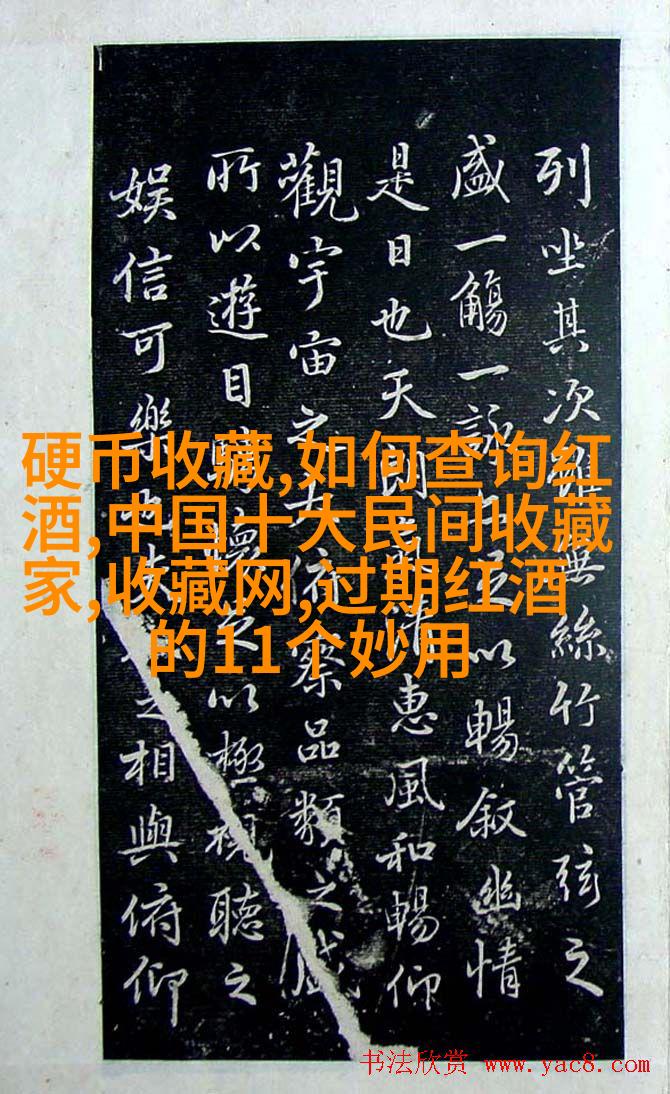 列坐其次雖無絲竹管弦之
盛一觴一詠亦足以暢叙幽情
是日也天朗氣清惠風和暢仰
觀宇宙之大俯察品類之盛
所以遊目騁懷足以極視聽之
娱信可樂也夫人之相與俯仰
硬币收藏,如何查询红
酒,中国十大民间收藏
家,收藏网,过期红酒
的11个妙用
书法欣赏 www.yac8.com